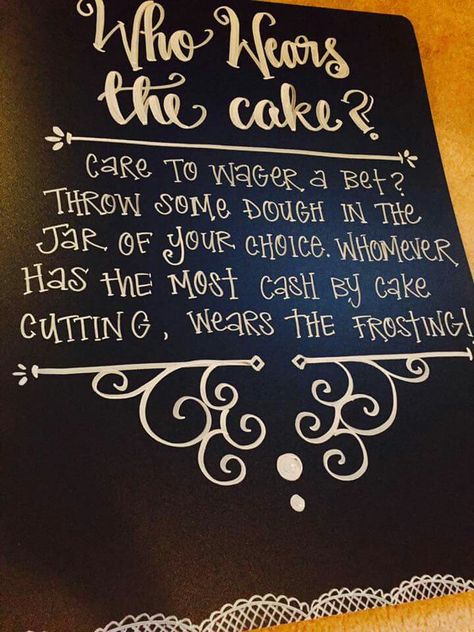 Who Wears
the cake?
Care to wager a bet?
Throw some dough in the
jar of your choice. Whomever
has the most cash by cake
cutting, wears the frosting!